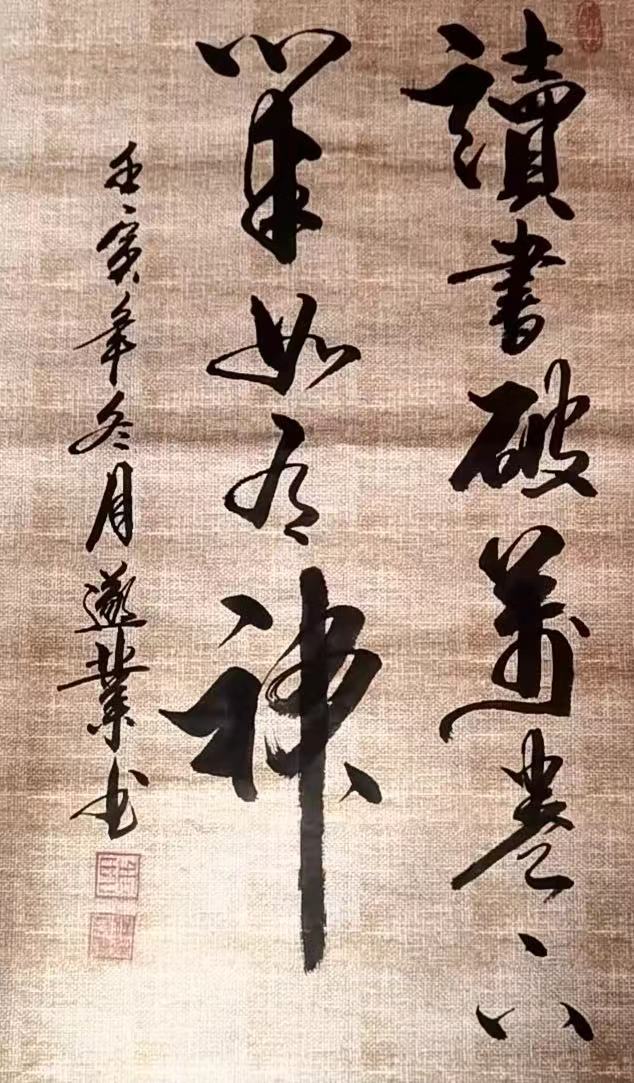 讀書破萬卷下
筆如有神
壬寅年冬月遂業书